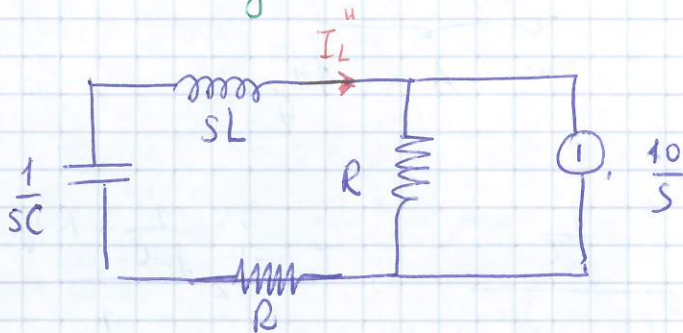 I_L"
SL
1/SC
R
10/S
R